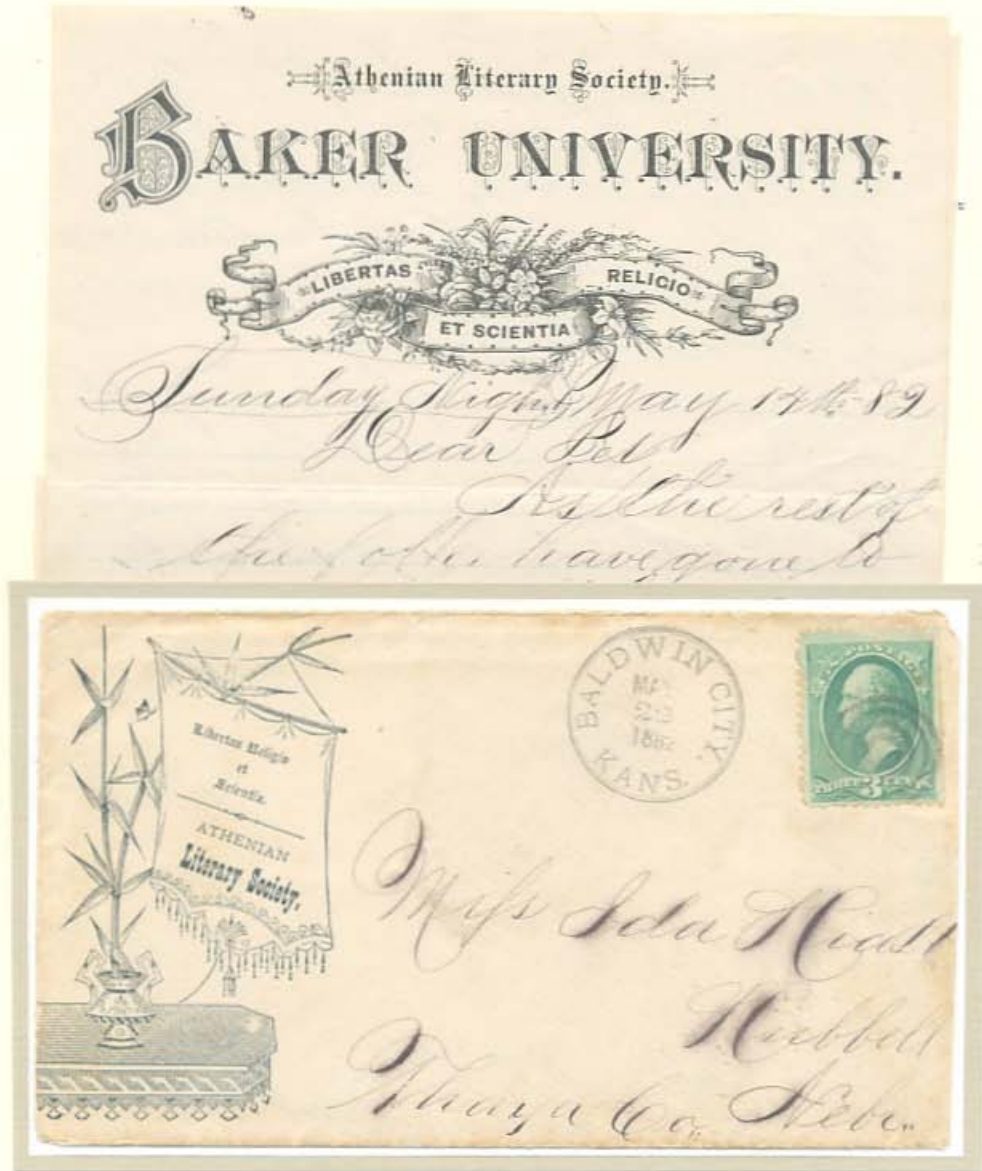 Athenian Literary Society.
BAKER UNIVERSITY.
LIBERTAS
RELIGIO
ET SCIENTIA
Sunday Night May 14th 82
Dear Pet
As the rest of
the folks have gone to
Libertas Religio
et
Scientia.
ATHENIAN
Literary Society.
BALDWIN CITY,
MAY
1882
KANS.
U.S. POSTAGE
THREE 3 CENTS
Miss Ida Hiatt
Hubbell
Thayer Co. Nebr.